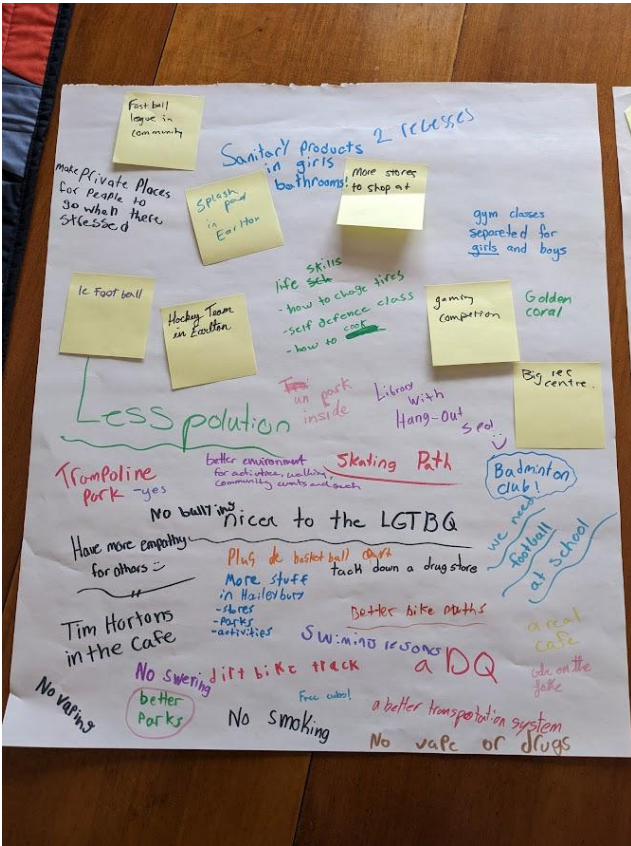 Foot ball
legue in
community
Sanitary products
in girls
bathrooms!
2 recesses
make private places
for people to
go when there
stressed
Splash
pad
in
Earlton
More stores
to shop at
gym classes
sepereted for
girls and boys
le football
Hockey Team
in Earlton
life skills
- how to chage tires
- self defence class
- how to cook
gaming
competion
Golden
coral
Big rec
centre.
Less polution
un park
inside
Library
with
Hang-Out
Spot
Trampoline
park -yes
better environment
for activities, walking,
community events and such
Skating Path
Badminton
club!
No bullying
nicer to the LGTBQ
we need
football
at school
Have more empathy
for others
Plus de basketball court
tack down a drug store
More stuff
in Haileybury
-stores
-parks
-activities
Tim Hortons
in the cafe
Better bike paths
Swiming lessons
a real
cafe
No swering
dirt bike track
a DQ
on the
No vaping
better
parks
No smoking
Free
a better transportation system
No vape or drugs